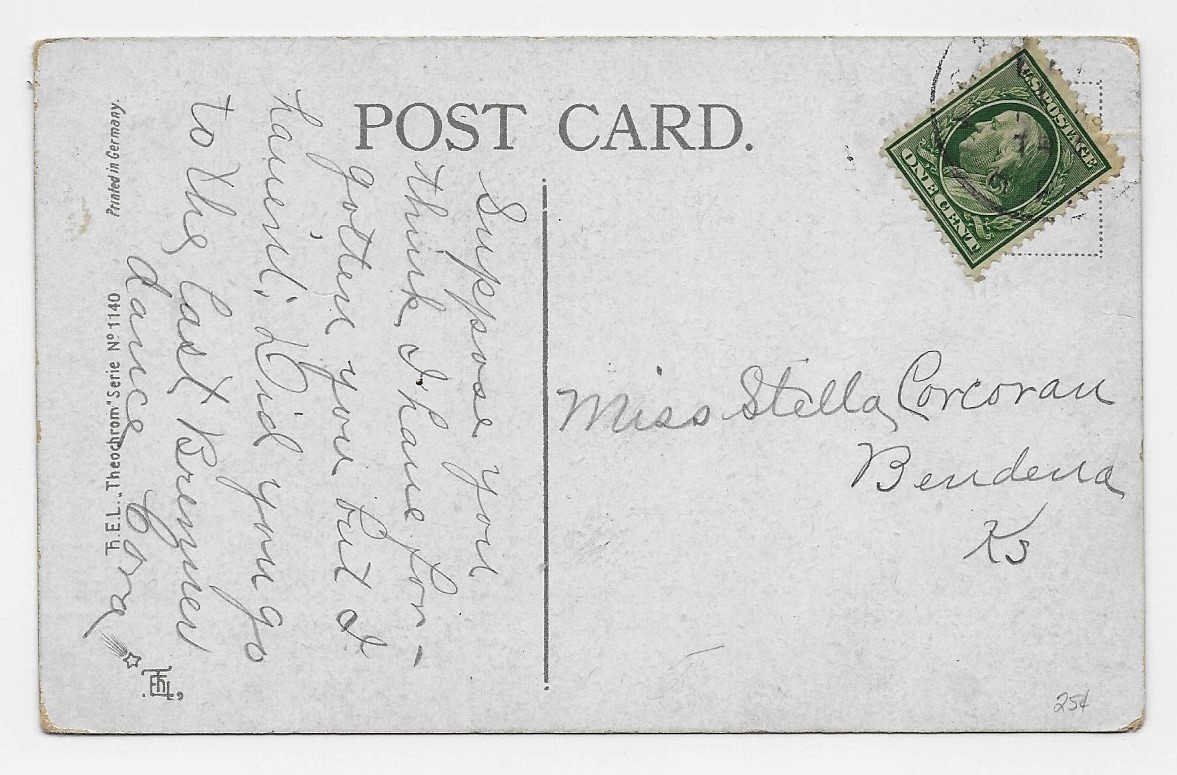 POST CARD.
U.S. POSTAGE
ONE CENT
Suppose you
think I have for-
gotten you but I
haven't, Did you go
to the last Brenner
dance Cora
Miss Stella Corcoran
Bendena
Ks
Printed in Germany.
T.E.L. „Theochrom" Serie Nº 1140
25¢